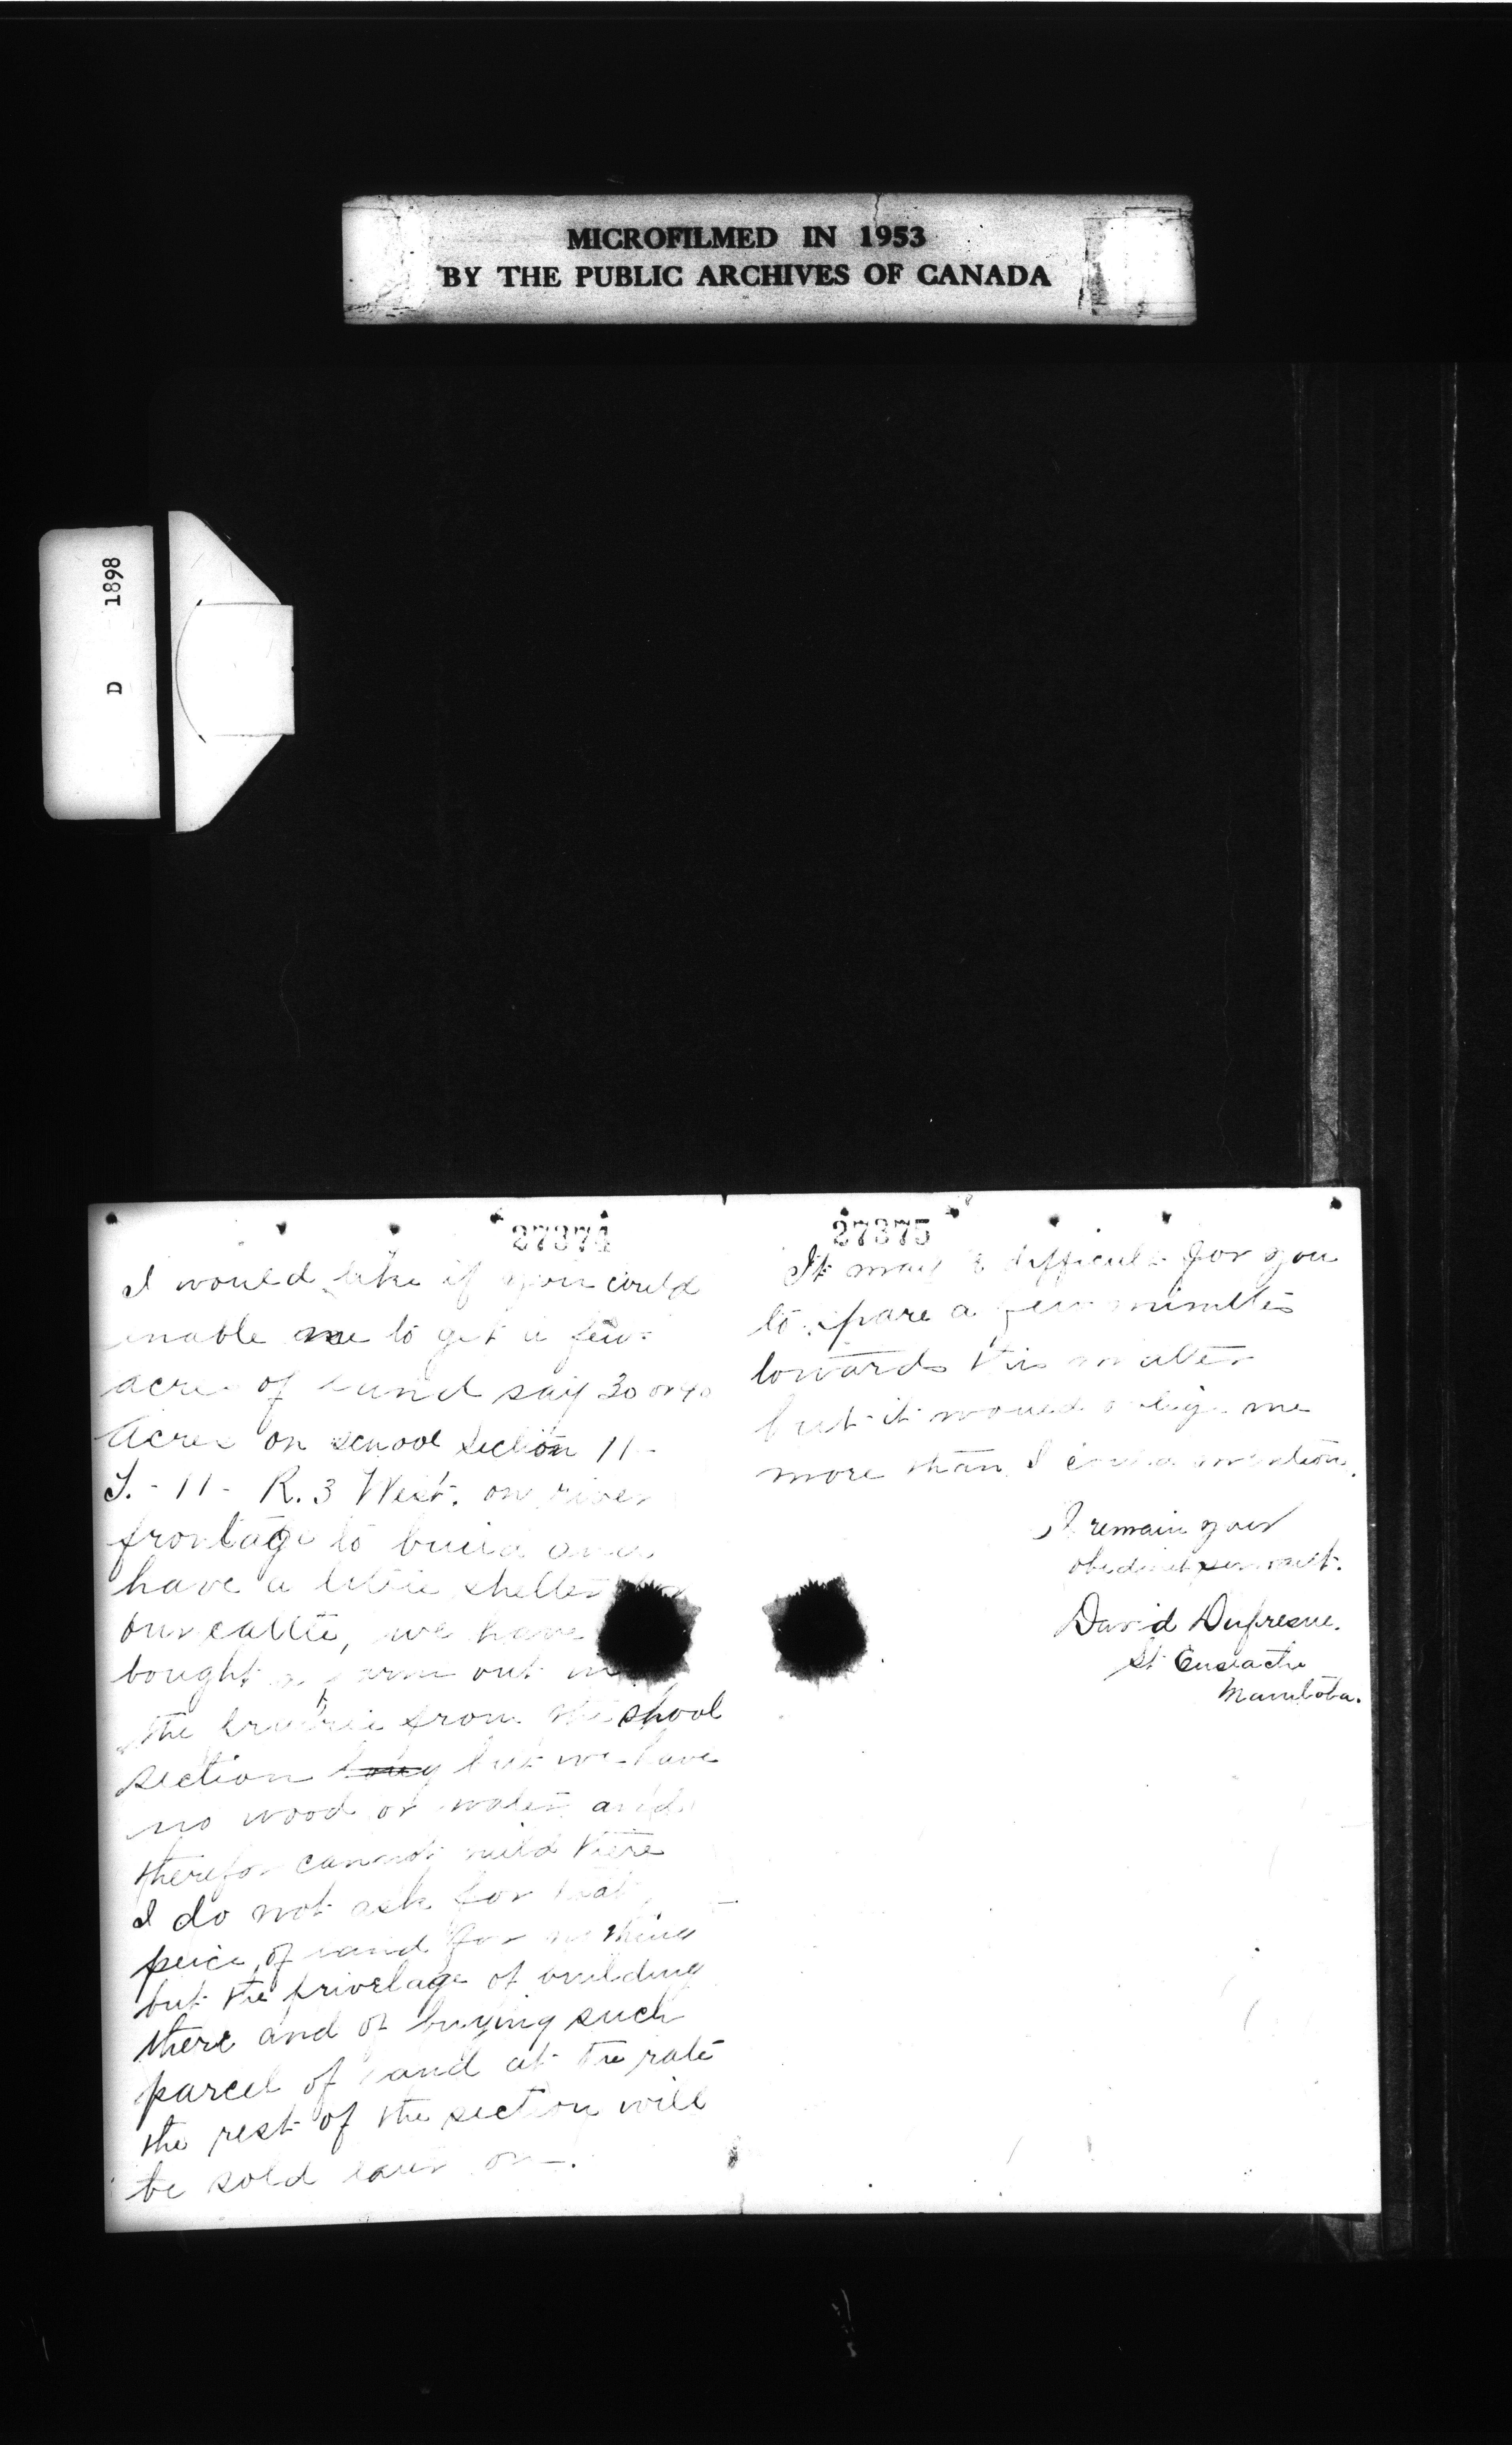 MICROFILMED IN 1953
BY THE PUBLIC ARCHIVES OF CANADA
D 1898
27374
I would like if you could
inable me to get a few
acres of land say 30 or 40
Acres on school section 11-
T. - 11 - R. 3 West. on river
frontage to build and
have a little shelter for
our cattle, we have
bought a farm out in
the prairie from the shool
section but we have
no wood or water and
therefor cannot build there
I do not ask for that
peice of land for nothing
but the privelage of building
there and of buying such
parcel of land at the rate
the rest of the section will
be sold later on.
27375
It may be difficult for you
to spare a few minutes
towards this matter
but it would oblige me
more than I could mention.
I remain your
obedient servant.
David Dufresne.
St Eustache
Manitoba.